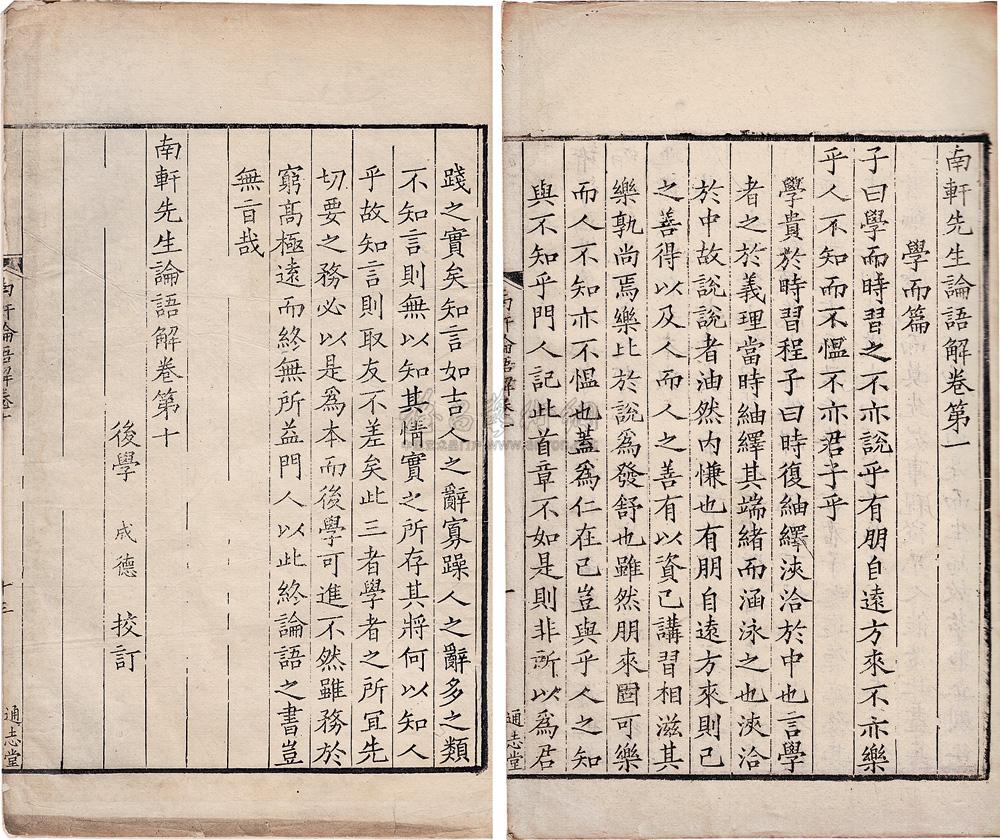 南軒先生論語解卷第一
學而篇
子曰學而時習之不亦說乎有朋自遠方來不亦樂
乎人不知而不慍不亦君子乎
學貴於時習程子曰時復紬繹浹洽於中也言學
者之於義理當時紬繹其端緒而涵泳之也浹洽
於中故說說者油然内慊也有朋自遠方來則己
之善得以及人而人之善有以資己講習相滋其
樂孰尚焉樂比於說為發舒也雖然朋來固可樂
而人不知亦不慍也蓋為仁在己豈與乎人之知
與不知乎門人記此首章不如是則非所以為君
南軒論語解卷一
一
通志堂
踐之實矣知言如吉人之辭寡躁人之辭多之類
不知言則無以知其情實之所存其將何以知人
乎故知言則取友不差矣此三者學者之所宜先
切要之務必以是為本而後學可進不然雖務於
窮高極遠而終無所益門人以此終論語之書豈
無旨哉
南軒先生論語解卷第十
後學 成德 挍訂
南軒論語解卷十
十三
通志堂